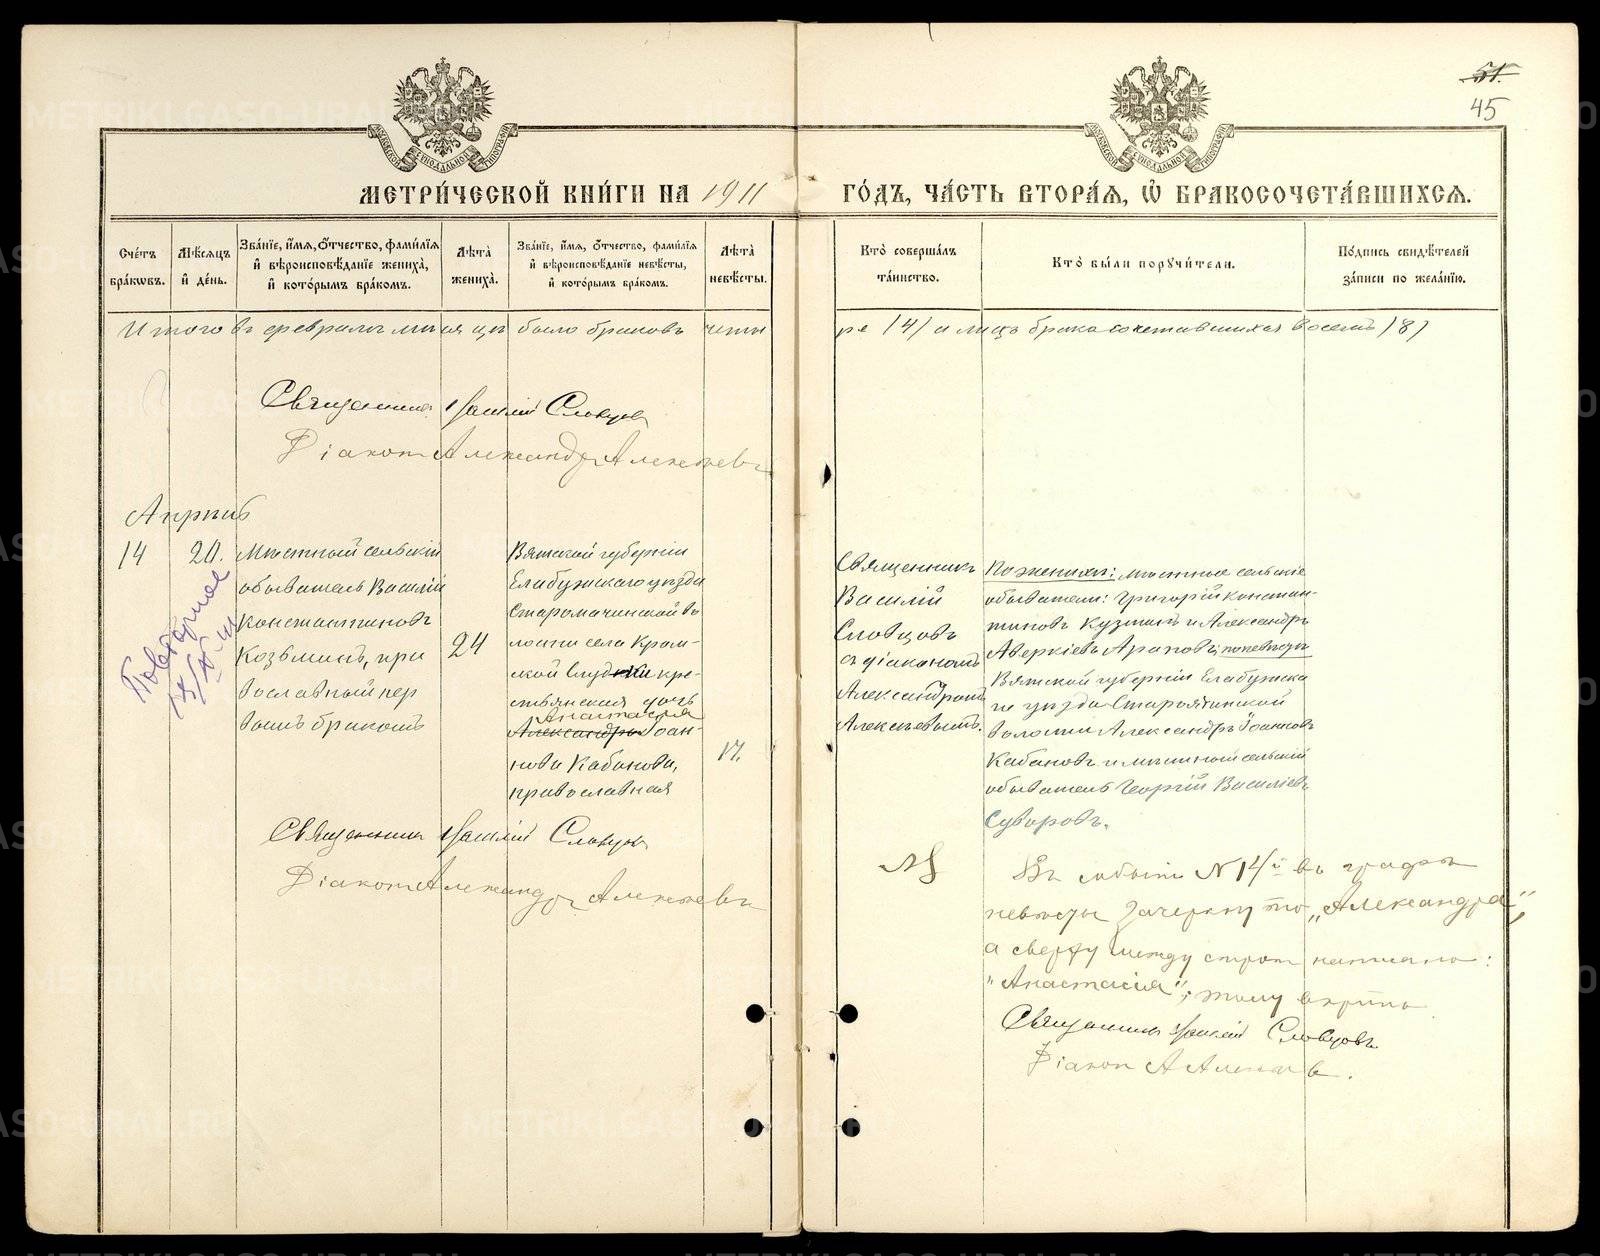 51.
45
МОСКОВСКОЙ СѴНОДАЛЬНОЙ ТИПОГРАФІИ
МОСКОВСКОЙ СѴНОДАЛЬНОЙ ТИПОГРАФІИ
МЕТРИ́ЧЕСКОЙ КНИ́ГИ НА 1911 ГО́ДЪ, ЧА́СТЬ ВТОРА́Ѧ, Ѽ БРАКОСОЧЕТА́ВШИХСѦ.
Сче́тъ бра́кѡвъ.
Мѣ́сѧцъ и҆ де́нь.
Зва́нїе, и҆́мѧ, ѻ҆́тчество, фами́лїѧ и҆ вѣроисповѣ́данїе жениха̀, и҆ кото́рымъ бра́комъ.
Лѣ́та̀ жениха̀.
Зва́нїе, и҆́мѧ, ѻ҆́тчество, фами́лїѧ и҆ вѣроисповѣ́данїе невѣ́сты, и҆ кото́рымъ бра́комъ.
Лѣ́та̀ невѣ́сты.
Кто̀ соверша́лъ та́инство.
Кто̀ бы́ли порꙋчи́тели.
По́дпись свидѣ́телей за́писи по жела́нїю.
Итого въ февралѣ мѣсяцѣ было браковъ четы
ре (4) и лицъ бракосочетавшихся восемь (8)
Священникъ Василій Словцовъ
Діаконъ Александръ Алексѣевъ
Апрѣль
14
20.
Мѣстный сельскій
обыватель Василій
Константиновъ
Козьминъ, пра
вославный пер
вымъ бракомъ
24
Вятской губерніи
Елабужскаго уѣзда
во
лости села
кре-
стьянская дочь
Анастасія
Александра Іоан-
нова Кабанова,
православная
17.
Священникъ
Василій
Словцовъ
съ діакономъ
Александромъ
Алексѣевымъ.
По женихѣ: мѣстные сельскіе
обыватели: Григорій Констан-
тиновъ Кузминъ и Александръ
Аверкіевъ Араповъ; по невѣстѣ
Вятской губерніи Елабужска
го уѣзда
волости Александръ Іоанновъ
Кабановъ и мѣстный сельскій
обыватель Георгій Василіевъ
Суворовъ.
Повторное
Священникъ Василій Словцовъ
Діаконъ Александръ Алексѣевъ
Въ событіи N 14й въ графѣ
невѣсты зачеркнуто „Александра“,
а сверху между строкъ написано:
"Анастасія"; тому вѣрить
Священникъ Василій Словцовъ
Діаконъ А Алексѣевъ.